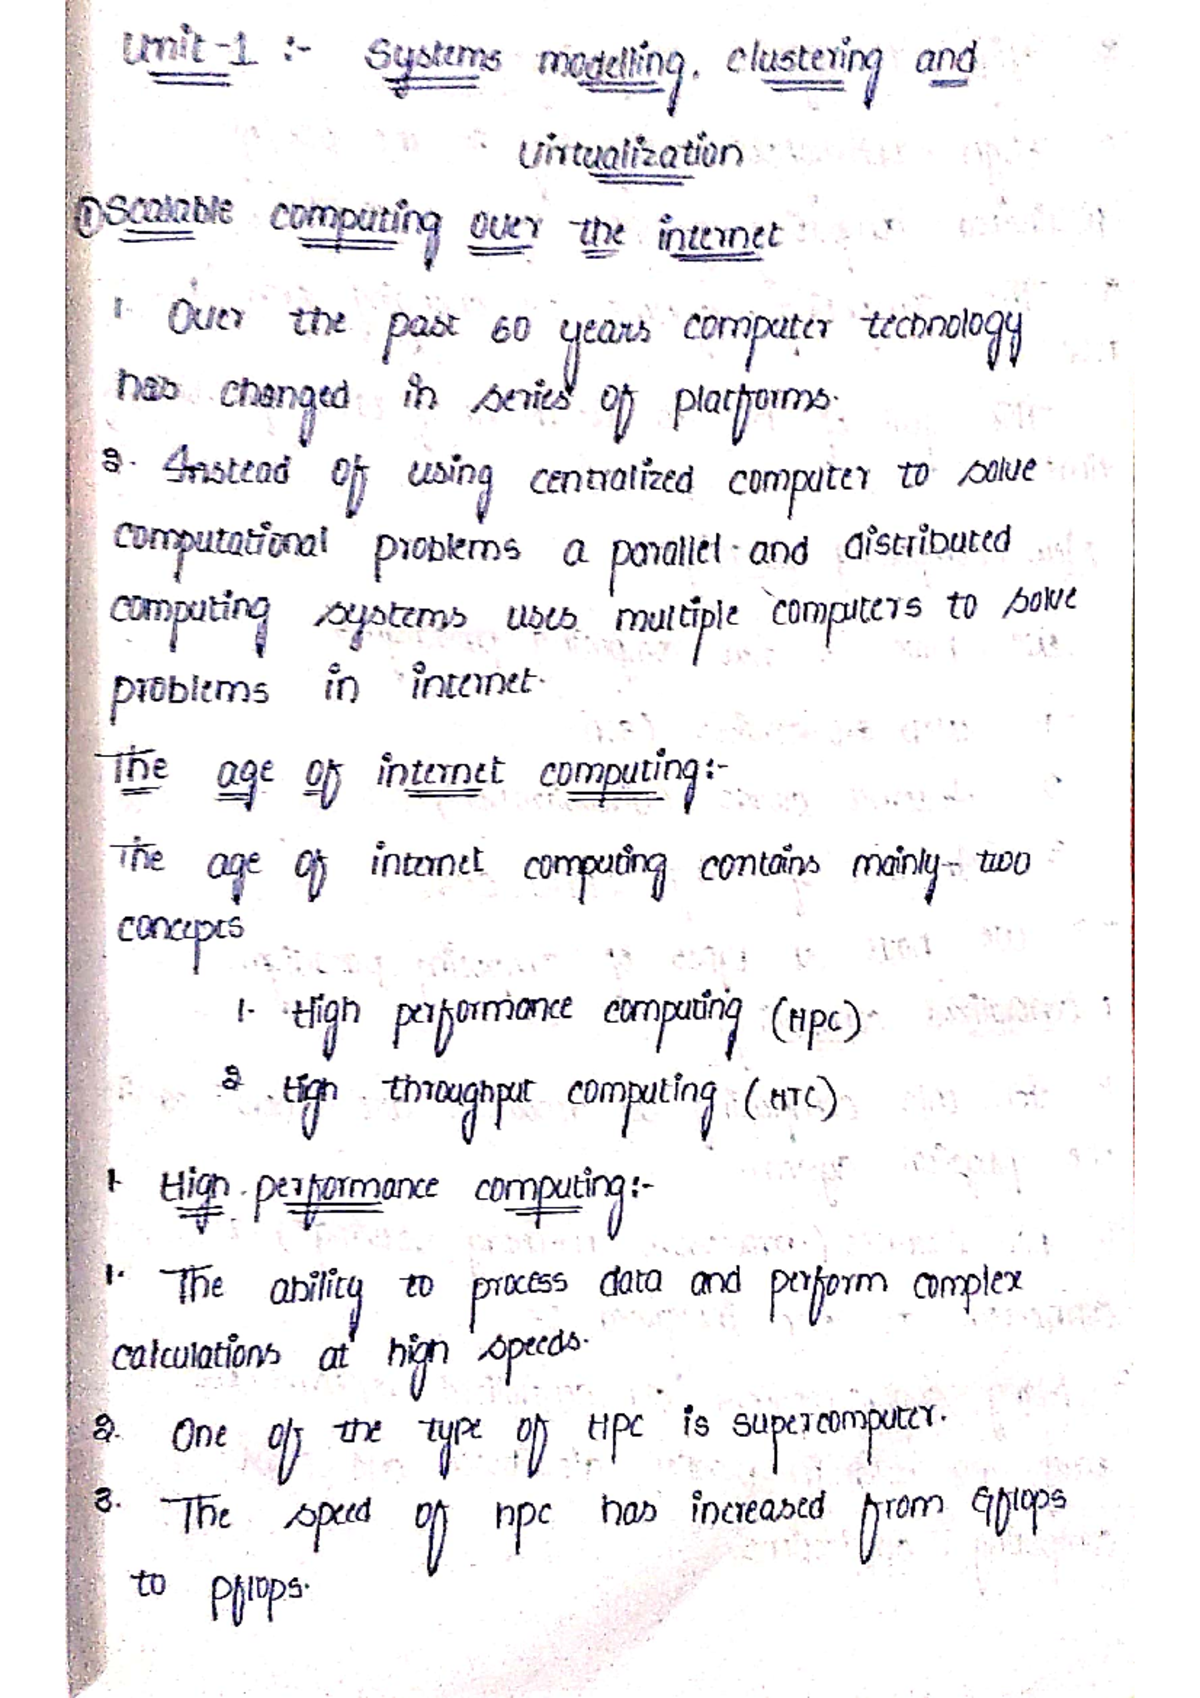 Unit-1 :- Systems modelling, clustering and
virtualization
① Scalable computing over the internet
1. Over the past 60 years computer technology
has changed in series of platforms.
2. Instead of using centralized computer to solve
computational problems a parallel and distributed
computing systems uses multiple computers to solve
problems in internet.
The age of internet computing:-
The age of internet computing contains mainly two
concepts
1. High performance computing (HPC)
2. High throughput computing (HTC)
1. High performance computing:-
1. The ability to process data and perform complex
calculations at high speeds.
2. One of the type of HPC is supercomputer.
3. The speed of hpc has increased from Gflops
to pflops.